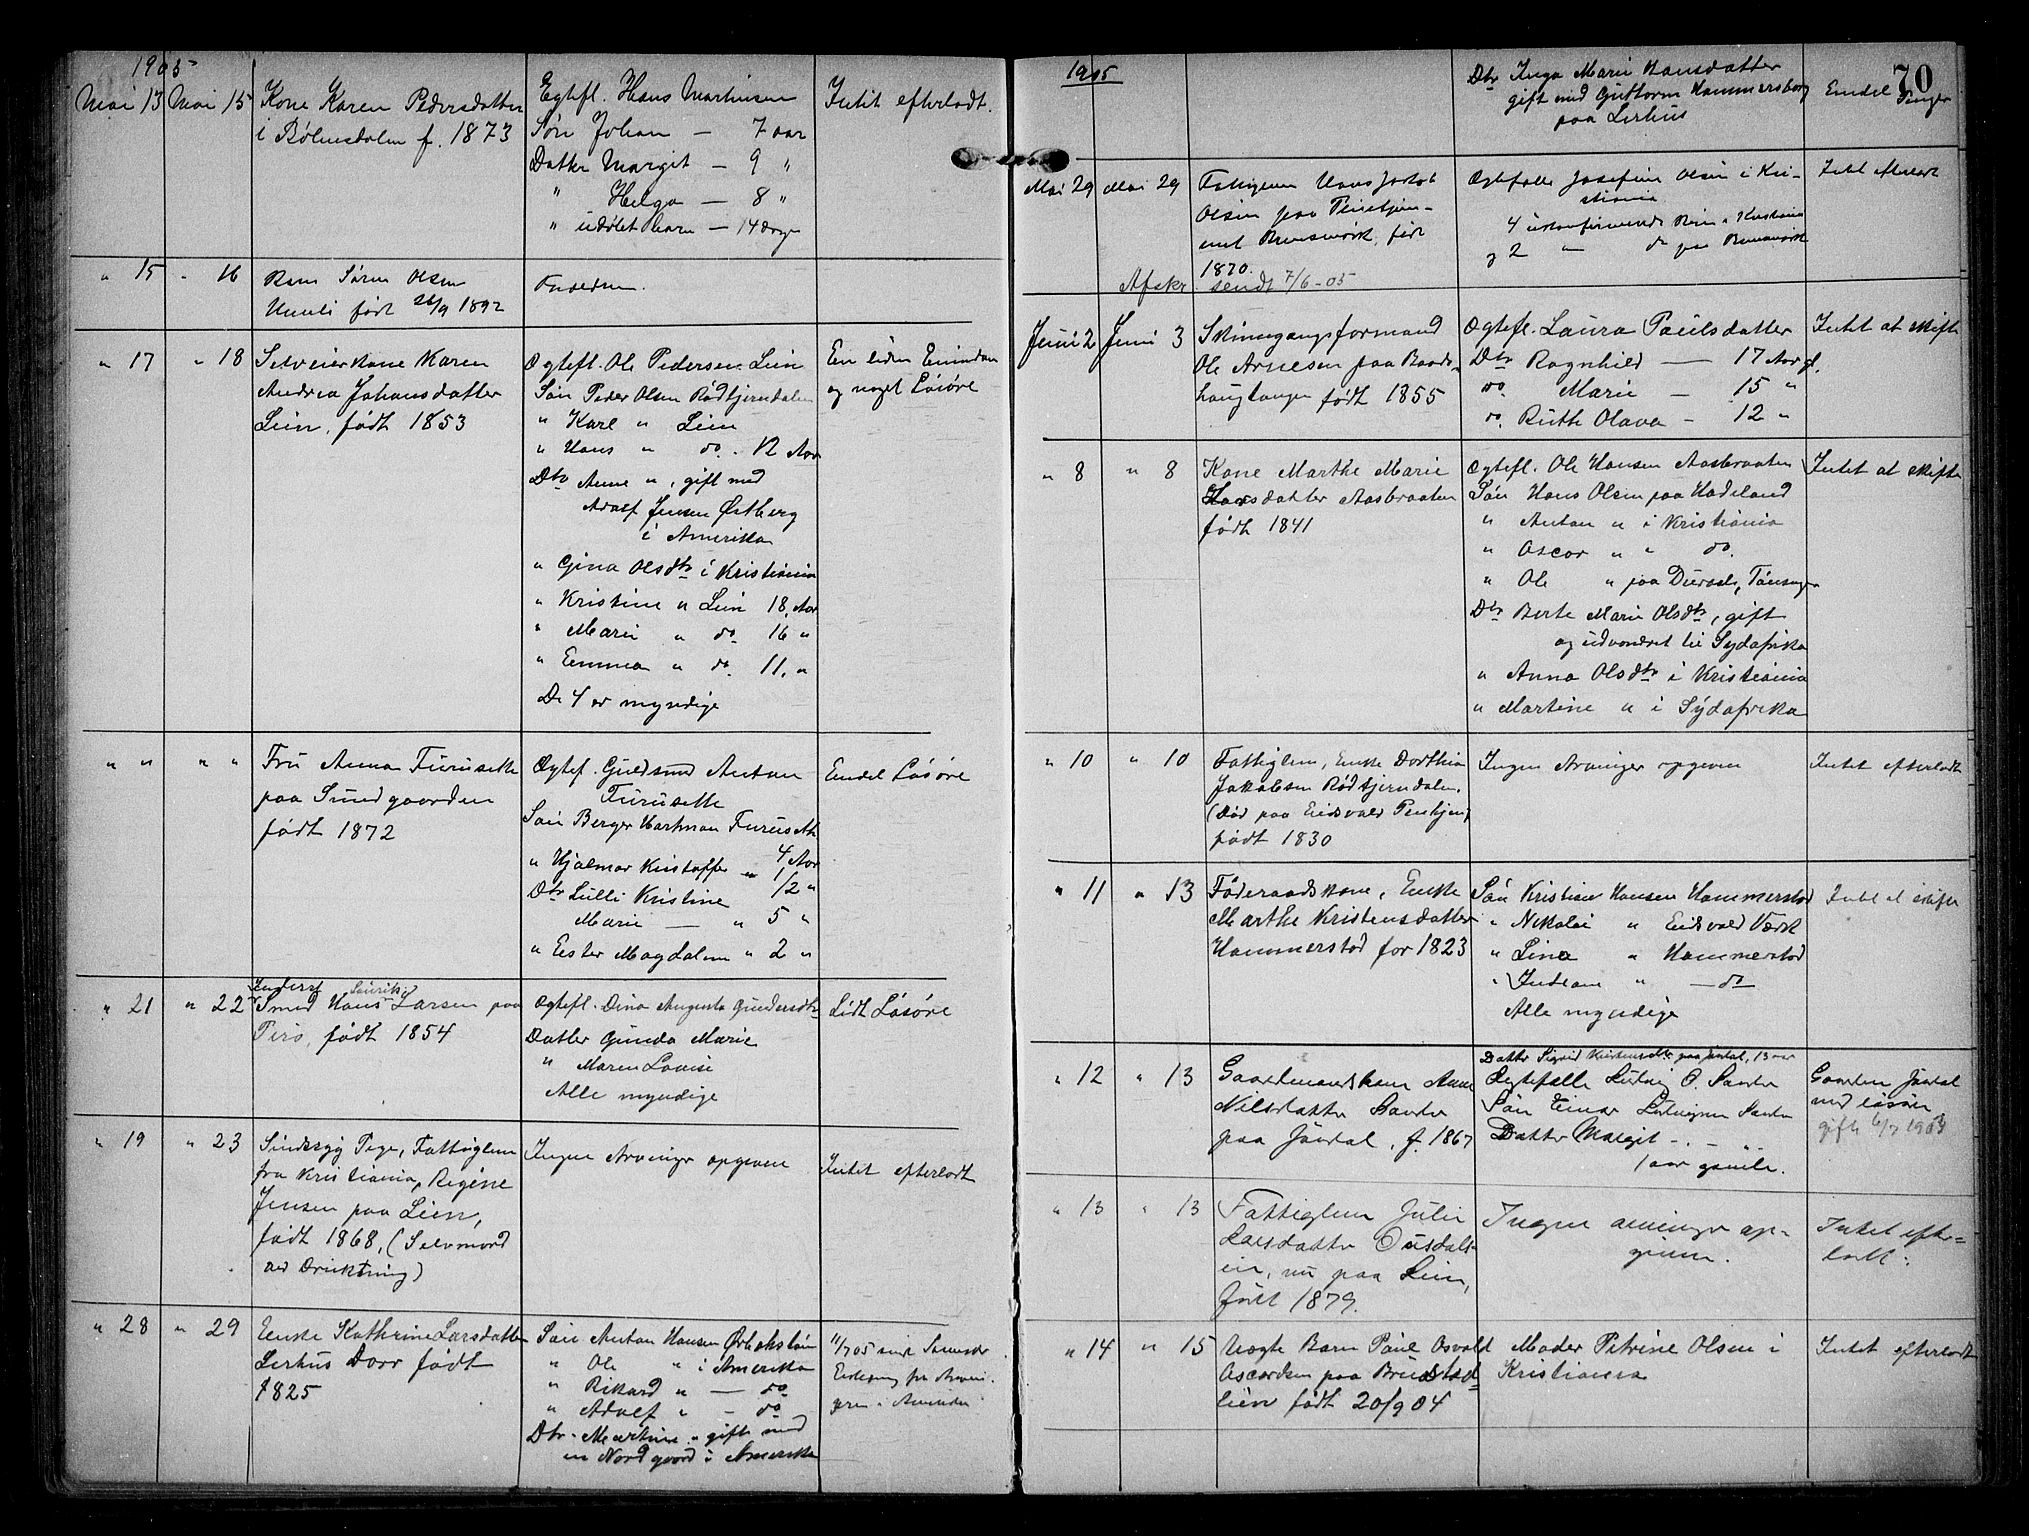 1905
Mai 13 Mai 15 Kone Karen Pedersdatter
i Bølensdalen f. 1873
Egtefl. Hans Martinsen
Søn Johan — 7 aar
Datter Margit — 9 "
" Helga — 8 "
" udøbt barn — 14 dage
Intet efterladt.
" 15 " 16 Barn Søren Olsen
født 26/9 1892
Forældre.
" 17 " 18 Selveierkone Karen
Andrea Johansdatter
Lien, født 1853
Ægtefl. Ole Pedersen Lien
Søn Peder Olsen Rødtjerndalen
" Karl " Lien
" Hans " do. 12 Aar
Dtr Anne ", gift med
Adolf Jensen Østberg
i Amerika
" Gina Olsdtr i Kristiania
" Kristine " Lien 18. Aar
" Marie " do 16 "
" Emma " do. 11. "
De 4 er myndige
En liden Eiendom
og noget Løsøre
" " " " Fru Anna Furuseth
paa Smedgaarden
født 1872
Ægtef. Guldsmed Anton
Furuseth
Søn Berger Hartman Furuseth
4 Aar
" Hjalmar Kristoffer " 1/2 "
Dtr Lulli Kristine
Marie — " 5 "
" Ester Magdalene " 2 "
Endel Løsøre
" 21 " 22 Inderst
Smed Hans Larsen paa
født 1854
Ægtefl. Dina Augusta Gundersdtr
Datter Gunda Marie
" Maren Lovise
Alle myndige
Lidt Løsøre
" 19 " 23 Sindssyg Pige, Fattiglem
fra Kristiania, Regine
Jensen paa Lien,
født 1868, (Selvmord
ved Drukning)
Ingen Arvinger opgivne
Intet efterladt
" 28 " 29 Enke Kathrine Larsdatter
Lerhus Dorr født
1825
Søn Anton Hansen
" Ole " i Amerika
" Rikard " — do
" Adolf " — do
Dtr. Martine " gift med
en Nordgaard i Amerika
1905
70
Dtr Inga Marie Hansdatter
gift med Guttorm Hammersborg
paa Lerhus
Endel Penger
Mai 29 Mai 29 Fattiglem Hans Jakob
Olsen paa
født
1870.
Afskr. sendt 7/6-05
Ægtefælle Josefine Olsen i Kri-
stiania
4 ukonfirmerede Børn i Kristiania
og 2 " do paa
Intet efterladt
Juni 2 Juni 3 Skinnegangsformand
Ole Arnesen paa Baads-
haugtangen født 1855
Ægtefl. Laura Paulsdatter
Dtr Ragnhild — 17 Aar gl.
do Marie — 15 "
do. Ruth Olava — 12 "
Intet at skifte
" 8 " 8 Kone Marthe Marie
Larsdatter Aasbraaten
født 1841
Ægtefl. Ole Hansen Aasbraaten
Søn Hans Olsen paa Hadeland
" Anton " i Kristiania
" Oscar " " do.
" Ole " paa
Dtr Berte Marie Olsdtr, gift
og udvandret til Sydafrika
" Anna Olsdtr i Kristiania
" Martine " i Sydafrika
Intet at skifte
" 10 " 10 Fattiglem, Enke Dorthea
Jakobsen Rødtjerndalen
(død paa Eidsvold
født 1830
Ingen Arvinger opgiven
Intet efterladt
" 11 " 13 Føderaadskone, Enke
Marthe Kristensdatter
Hammerstad før 1823
Søn Kristian Hansen Hammerstad
" Nikolai " Eidsvold Værk
" Lina " Hammerstad
" " — do
Alle myndige
Intet at skifte
" 12 " 13 Gaardmandskone Anne
Nilsdatter Sander
paa Jøndal, f. 1867
Datter Sigrid Kristensdtr paa Jøndal, 13 aar
Ægtefælle Ludvig O. Sander
Søn Einar Ludvigsen Sander
Datter Margit — . — "
1 aar gamle.
Gaarden Jøndal
med løsøre
" 13 " 13 Fattiglem Julie
Larsdatter
nu paa Lien,
født 1879.
Ingen arvinger op-
givne.
Intet efter=
ladt.
" 14 " 15 Uægte Barn Paul Osvald
Ascardsen paa Brustad
lien født 20/9 04
Moder Petrine Olsen i
Kristiania
Intet efterladt